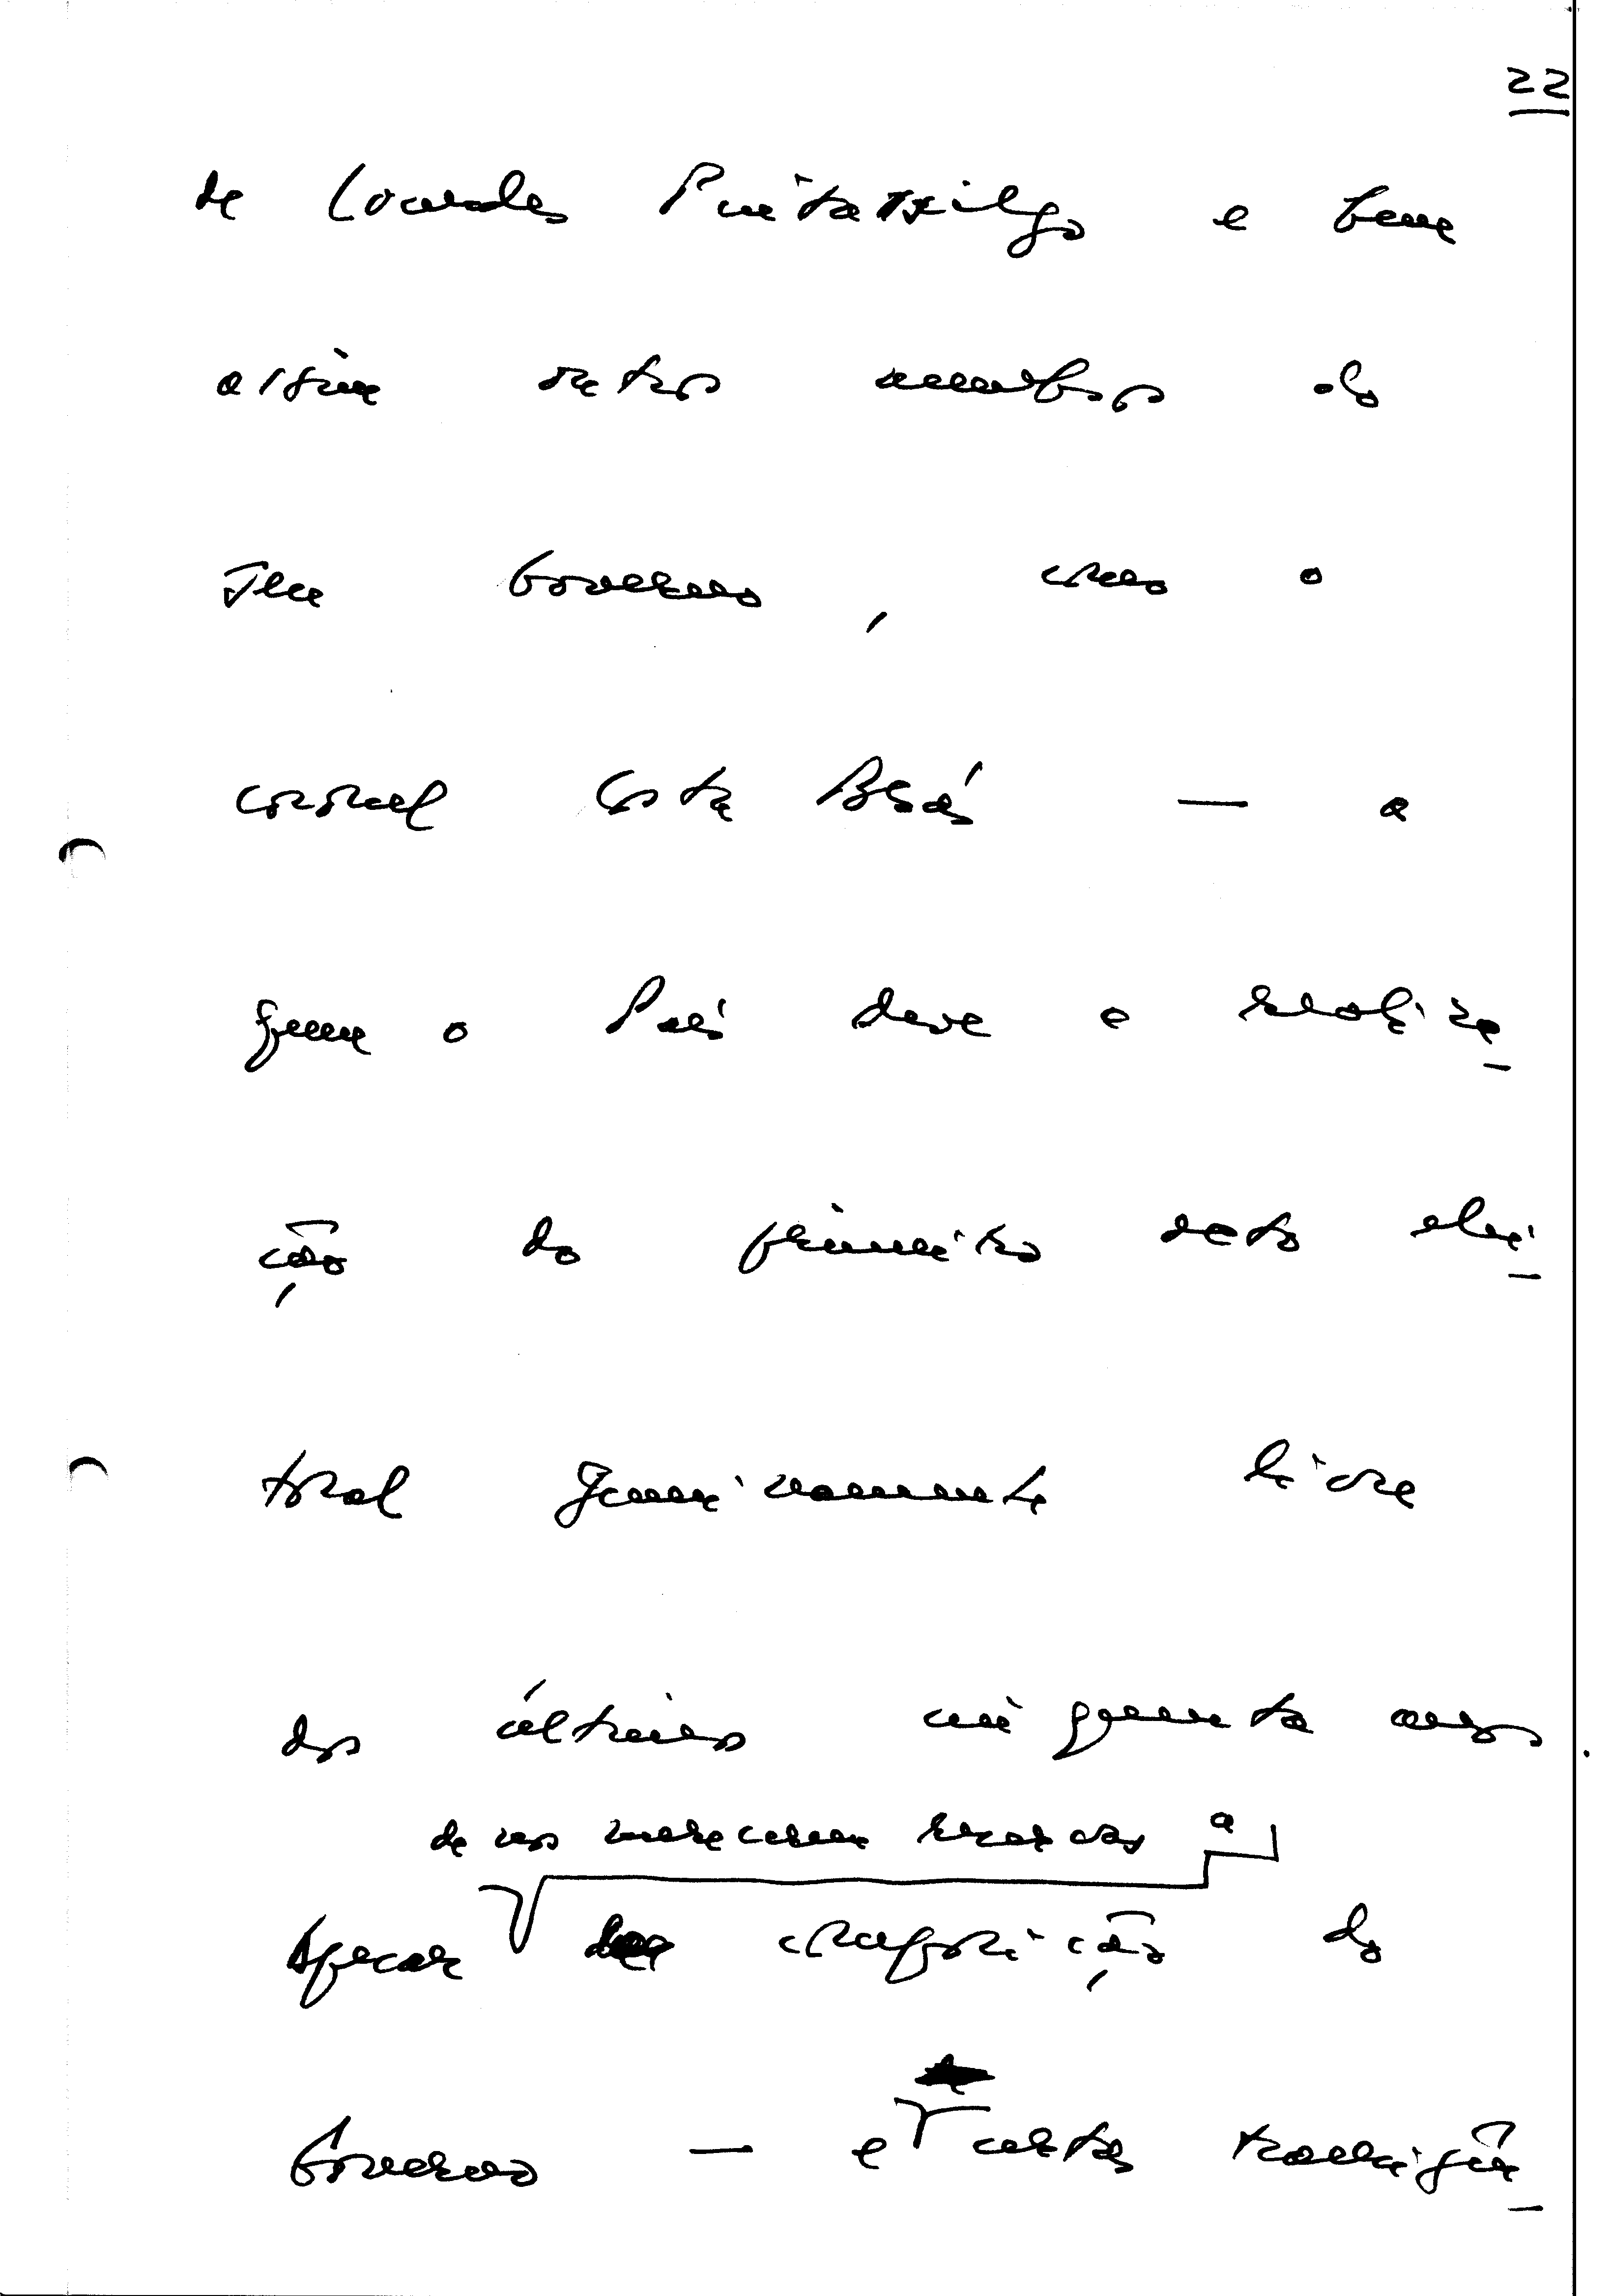 22
de Lourdes Pintassilgo e bem
assim outros membros do
seu Governo, como o
coronel Costa Brás — a
quem o País deve a realiza
ção do primeiro acto elei
toral genuinamente livre
dos últimos cinquenta anos.
de nos merecerem reservas a
Apesar composição do
Governo — e certas transigên